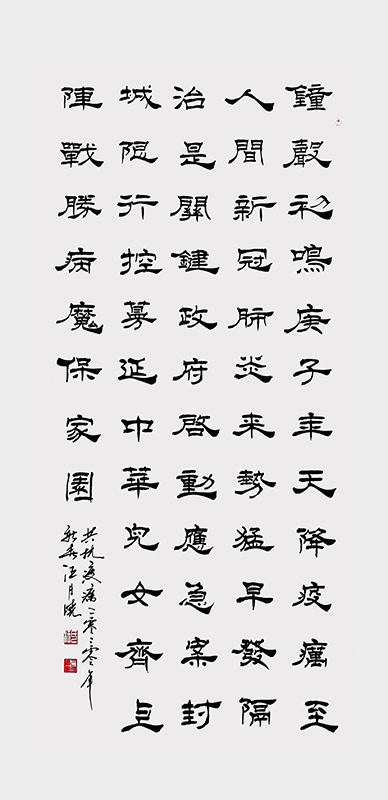 鐘聲初鳴庚子年天降疫癘至
人間新冠肺炎来勢猛早發隔
治是關鍵政府啓動應急案封
城限行控蔓延中華兒女齊上
陣戰勝病魔保家園
共抗疫癘二零二零年
新春汪月曉